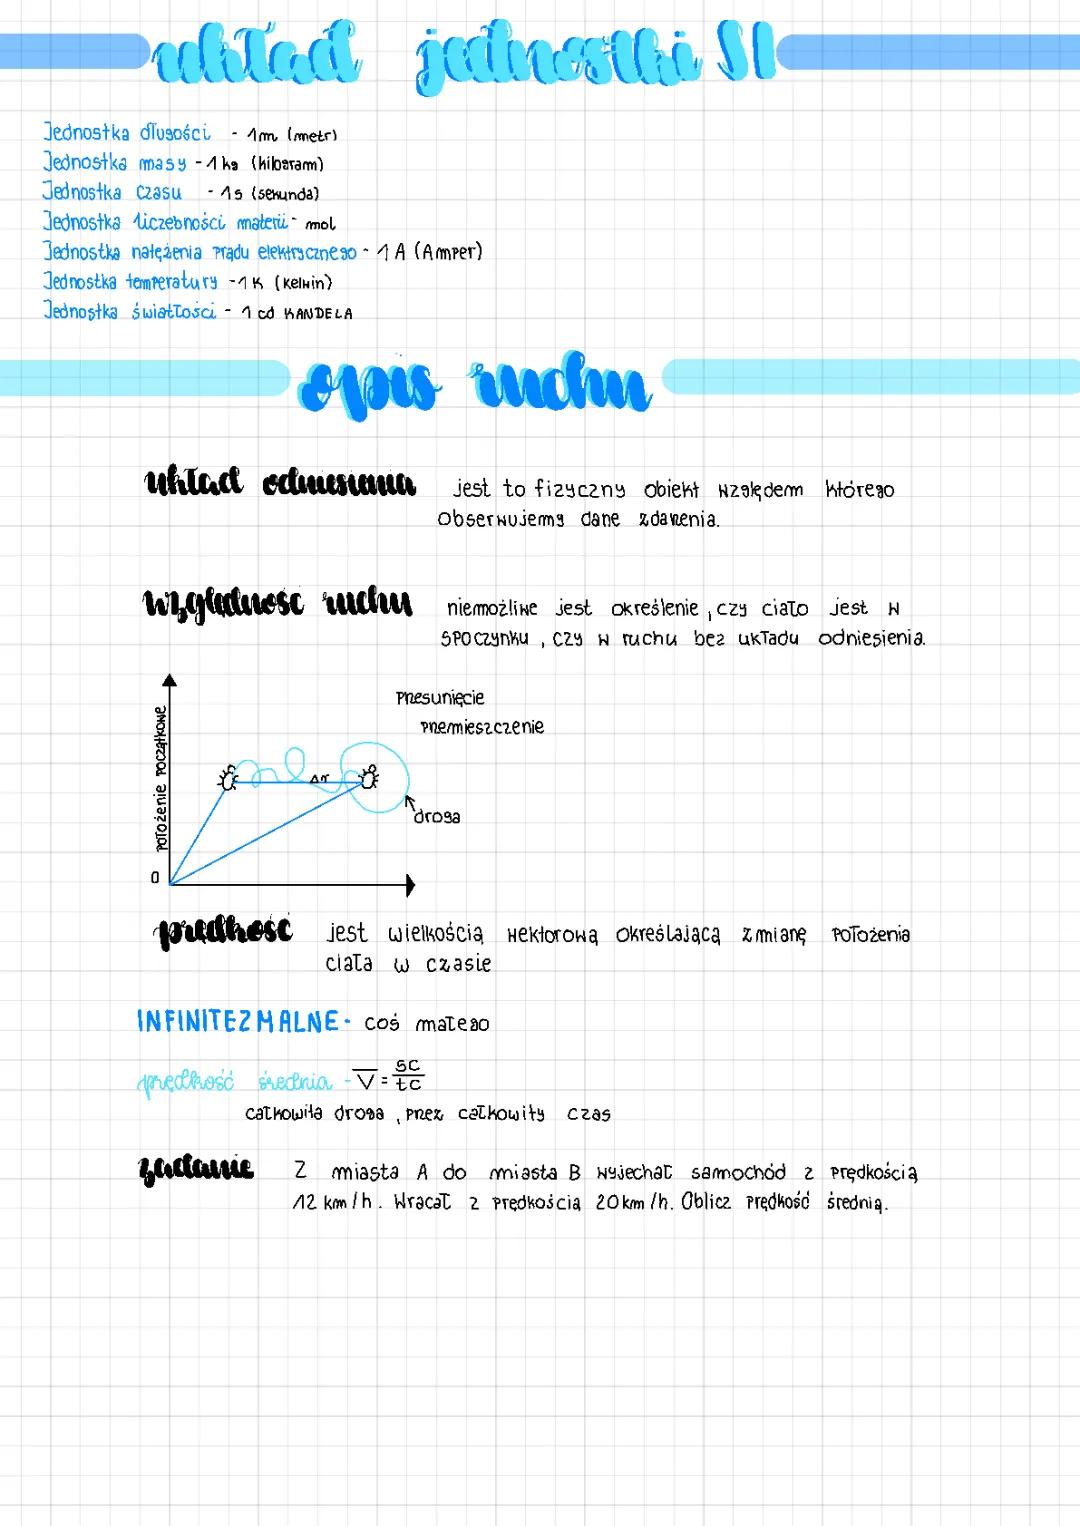 układ jednostki SI
Jednostka długości - 1m (metr)
Jednostka masy - 1 kg (kilogram)
Jednostka czasu - 1s (sekunda)
Jednostka liczebności materii - mol
Jednostka natężenia prądu elektrycznego - 1 A (Amper)
Jednostka temperatury - 1 K (Kelwin)
Jednostka światłości - 1 cd KANDELA
opis ruchu
układ odniesienia jest to fizyczny obiekt względem którego
obserwujemy dane zdarzenia.
względność ruchu niemożliwe jest określenie, czy ciało jest w
spoczynku, czy w ruchu bez układu odniesienia.
Przesunięcie
przemieszczenie
położenie początkowe
Δr
droga
0
prędkość jest wielkością wektorową określającą zmianę położenia
ciała w czasie
INFINITEZMALNE - coś małego
prędkość średnia - V = sc/tc
całkowita droga, przez całkowity czas
zadanie Z miasta A do miasta B wyjechał samochód z prędkością
12 km/h. Wracał z prędkością 20 km/h. Oblicz prędkość średnią.